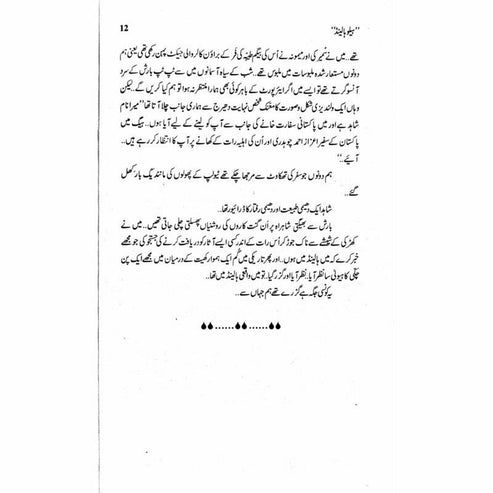 "ہیلو ہالینڈ" 12
تھے۔۔ میں نے سُمیر کی اور میمونہ نے اُس کی بیگم طیبہ کی فَر کے براؤن کالر والی جیکٹ پہن رکھی تھی یعنی ہم
دونوں مستعار شدہ ملبوسات میں ملبوس تھے۔۔ شب کے سیاہ آسمانوں میں سے ٹپ ٹپ بارش کے سرد
آنسو گرتے تھے تو ایسے میں اگر ایئرپورٹ کے باہر کوئی بھی ہمارا منتظر نہ ہوا تو ہم کیا کریں گے۔ لیکن
وہاں ایک ولندیزی شکل وصورت کا مضحک شخص نہایت دھیرج سے ہماری جانب چلا آتا تھا "میرا نام
شاہد ہے اور میں پاکستانی سفارت خانے کی جانب سے آپ کو لینے کے لیے آیا ہوں۔۔ ہیگ میں
پاکستان کے سفیر اعزاز احمد چوہدری اور اُن کی اہلیہ رات کے کھانے پر آپ کا انتظار کر رہے ہیں۔۔
آیئے۔۔"
ہم دونوں جو سفر کی تھکاوٹ سے مرجھا چکے تھے ٹیولپ کے پھولوں کی مانند یک بار کھل
گئے۔۔
شاہد ایک دھیمی طبیعت اور دھیمی رفتار کا ڈرائیور تھا۔۔
بارش سے بھیگتی شاہراہ پر اَن گنت کاروں کی روشنیاں پھسلتی چلی جاتی تھیں۔۔ میں نے
کھڑکی کے شیشے سے ناک جوڑ کر اُس رات کے اندر کسی ایسے آثار کو دریافت کرنے کی جستجو کی جو مجھے
خبر کرے کہ میں ہالینڈ میں ہوں۔۔ اور پھر تاریکی میں گم ایک ہموار کھیت کے درمیان میں مجھے ایک پن
چکّی کا ہیولیٰ سا نظر آیا۔ نظر آیا اور گزر گیا۔ تو میں واقعی ہالینڈ میں تھا۔۔
یہ کونسی جگہ ہے گزرے تھے ہم جہاں سے۔۔